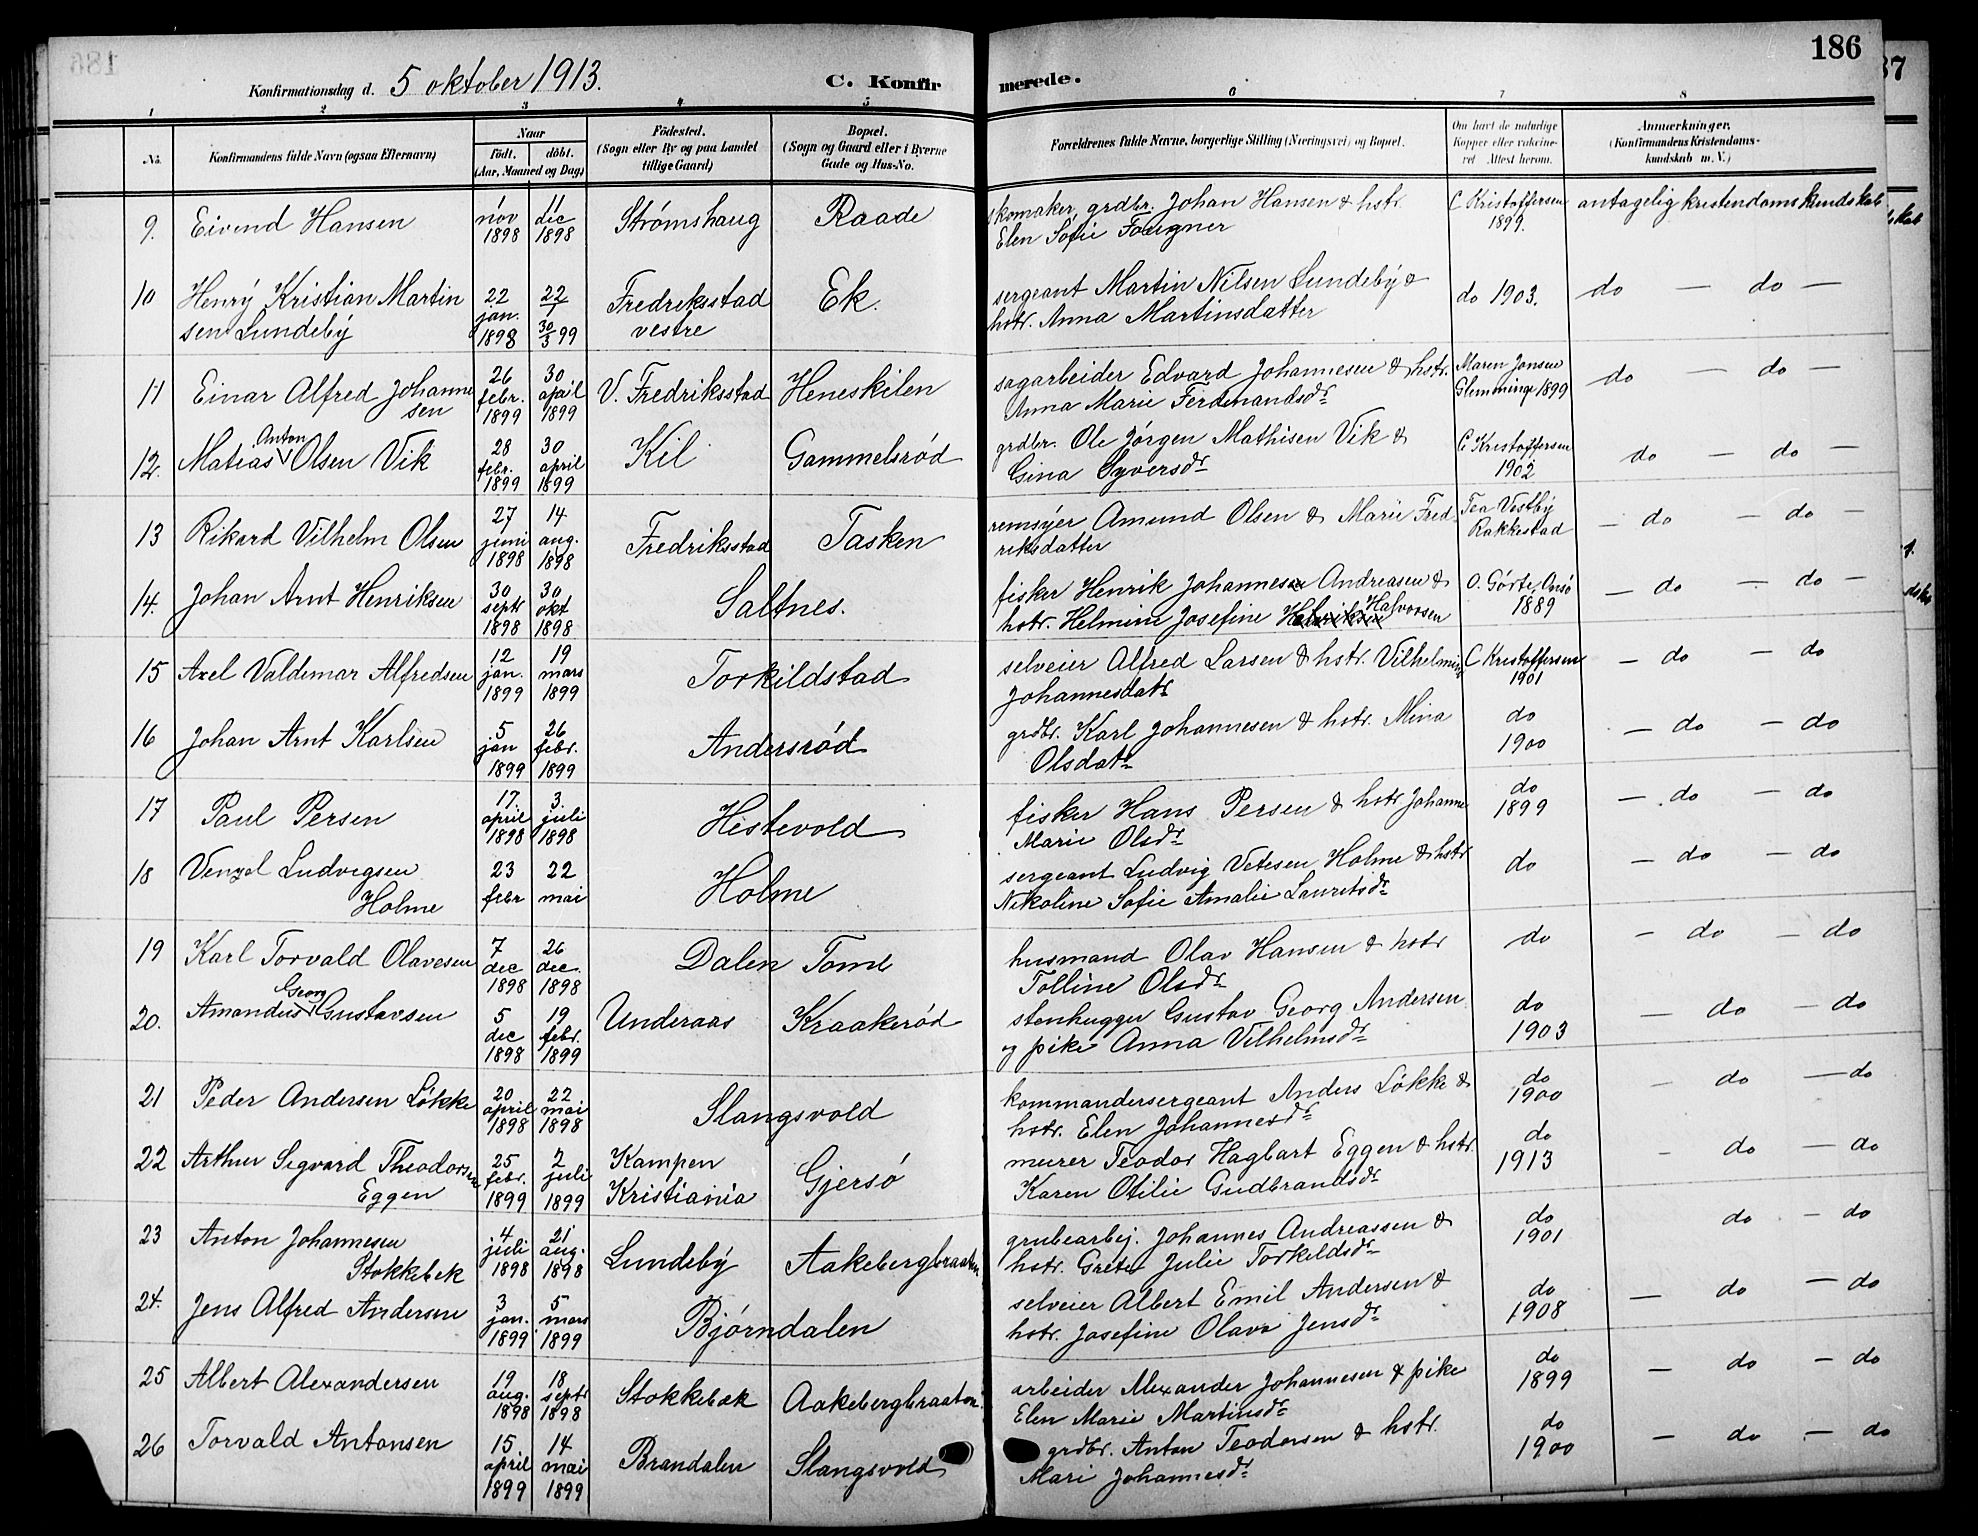 186
Konfirmationsdag d. 5 oktober 1913. C. Konfirmerede.
1 2 3 4 5 6 7 8
No.
Konfirmandens fulde Navn (ogsaa Efternavn)
Naar
Födt. döbt.
(Aar, Maaned og Dag)
Födested.
(Sogn eller By og paa Landet
tillige Gaard)
Bopæl.
(Sogn og Gaard eller i Byerne
Gade og Hus-No.
Forældrenes fulde Navne, borgerlige Stilling (Næringsvei) og Bopæl.
Om havt de naturlige
Kopper eller vakcine-
ret Attest herom.
Anmærkninger.
(Konfirmandens Kristendoms-
kundskab m. V.)
9. Eivend Hansen 1 nov 1898 11 dec 1898 Strømshaug Raade skomaker, grdbr. Johan Hansen & hstr. C Kristoffersen antagelig kristendomskundskab
Elen Sofie 1899.
10 Henry Kristian Martin 22 jan. 1898 Fredriksstad Ek. sergeant Martin Nilsen Lundeby & do 1903. do — do —
sen Lundeby 30/3 99 vestre hstr. Anna Martinsdatter
11 Einar Alfred Johanne 26 febr. 1899 30 april 1899 V. Fredriksstad Heneskilen sagarbeider Edvard Johannesen & hstr. Maren Jonsen do — do —
sen Anna Marie Ferdenandsdr Glemminge 1899
12. Matias Anton Olsen Vik 28 febr. 1899 30 april 1899 Kil Gammelsrød grdbr. Ole Jørgen Mathisen Vik & C Kristoffersen do — do —
Gina Syversdr 1902
13 Rikard Vilhelm Olsen 27 juni 1898 14 aug. 1898 Fredriksstad Tasken remsyer Amund Olsen & Marie Fred- Tea Vestby — do — do —
riksdatter Rakkestad
14. Johan Arnt Henriksen 30 septr 1898 30 okt 1898 Saltnes. fisker Henrik Johannesen Andreasen & O. Görte, Onsö — do — do —
hstr. Helmine Josefine Halvorsen 1889
15 Axel Valdemar Alfredsen 12 jan. 1899 19 mars 1899 Torkildstad selveier Alfred Larsen & hstr. Vilhelmine C Kristoffersen — do — do
Johannesdatr 1901
16 Johan Arnt Karlsen 5 jan 1899 26 febr. 1899 Andersrød grdbr. Karl Johannesen & hstr. Mina do — do — do
Olsdatr 1900
17 Paul Persen 17 april 1898 3 juli 1898 Histevold fisker Hans Persen & hstr Johanne do — do — do
Marie Olsdr 1899
18 Venzel Ludvigsen 23 febr 22 mai Holme sergeant Ludvig Vetesen Holme & hstr do — do — do
Holme Nikoline Sofie Amalie Lauritsdr
19 Karl Torvald Olavesen 7 dec 1898 26 dec. 1898 Dalen Tomb husmand Olav Hansen & hstr do — do — do
Tolline Olsdr
20. Amandus Georg Gustavsen 5 dec 1898 19 febr. 1899 Underaas Kraakerød stenhugger Gustav Georg Andersen do — do — do
og pike Anna Vilhelmsdr 1903
21 Peder Andersen Lökke 20 april 1898 22 mai 1898 Slangsvold kommandersergeant Anders Lökke & do — do — do
hstr. Elen Johannesdr 1900
22 Arthur Segvard Theodorsen 25 febr. 1899 2 juli 1899 Kampen Gjersö murer Teodor Hagbart Eggen & hstr. do - do — do
Eggen Kristiania Karen Otilie Gudbrandsdr 1913
23 Anton Johannesen 4 juli 1898 21 aug. 1898 Lundeby Aakebergbraaten grubearbej. Johannes Andreassen & do do - do
Stokkebek hstr. Grete Julie Torkeldsdr 1901
24. Jens Alfred Andersen 3 jan. 1899 5 mars 1899 Bjørndalen selveier Albert Emil Andersen & do — do — do
hstr. Josefine Olava Jensdr 1908
25 Albert Alexandersen 19 aug. 1898 18 septr 1898 Stokkebæk Aakebergbraaten arbeider Alexander Johannesen & pike do — do — do
Elen Marie Martinsdr 1899
26 Torvald Antonsen 15 april 1899 14 mai 1899 Brandalen Slangsvold grdbr. Anton Teodorsen & hstr. do — do — do
Mari Johannesdr 1900